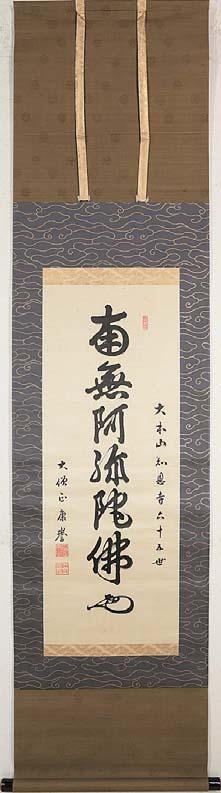 大本山知恩寺六十五世
南無阿弥陀佛
大僧正康譽